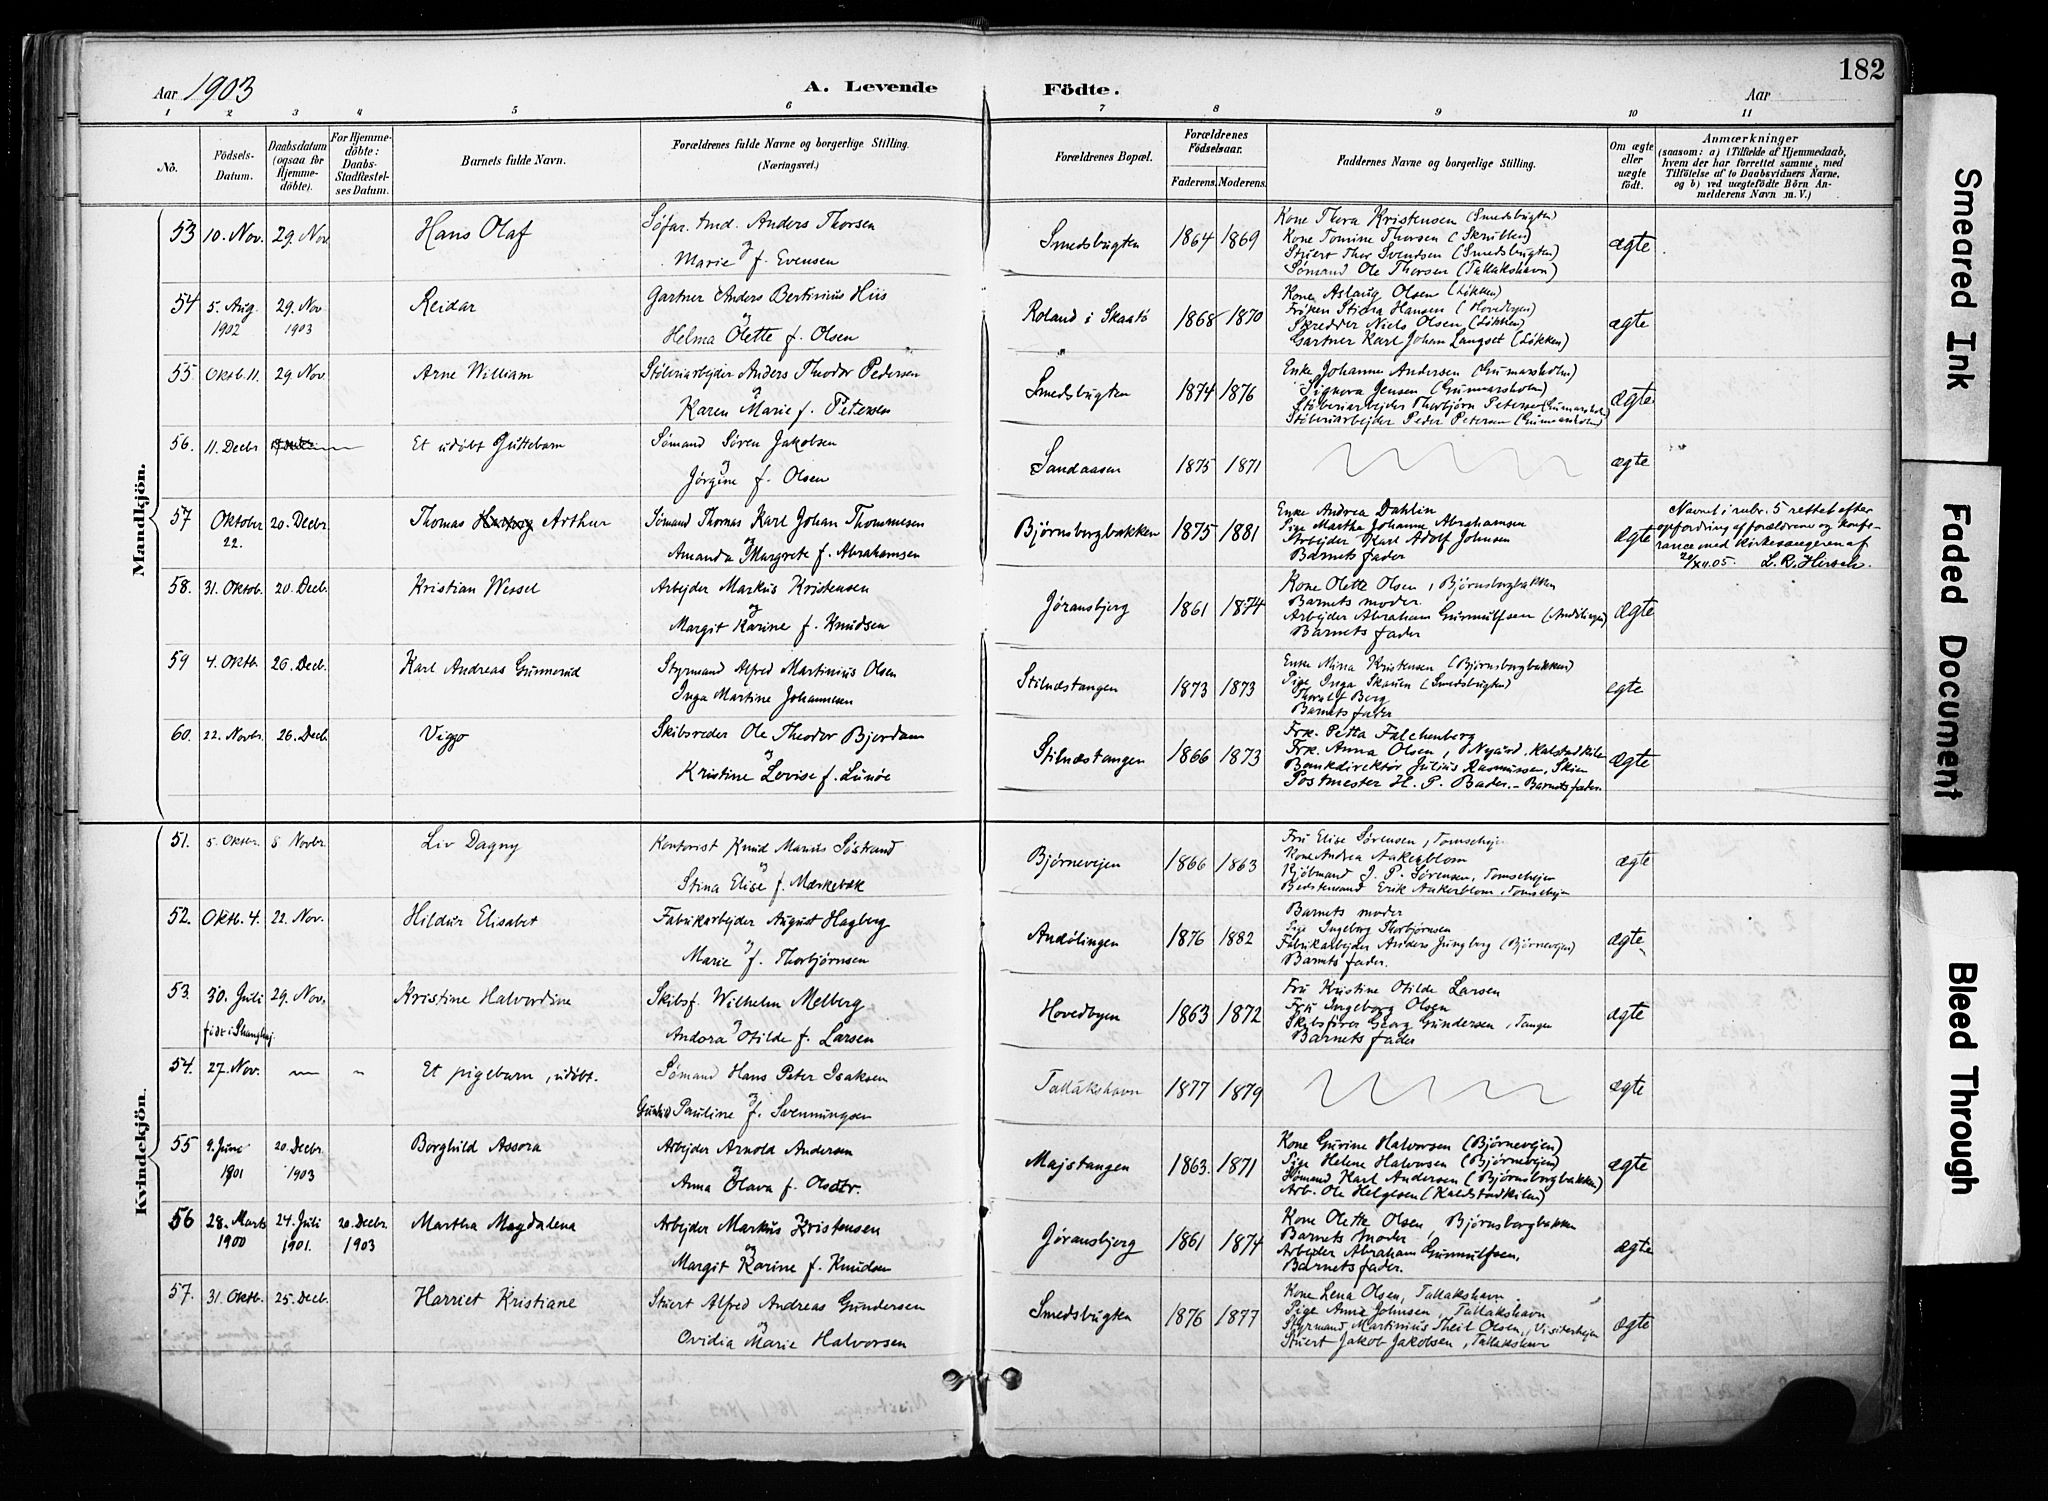 182
Aar 1903
A. Levende Födte.
Aar
1 2 3 4 5 6 7 8 9 10 11
No.
Födsels-Datum.
Daabsdatum (ogsaa for Hjemmedöbte).
For Hjemmedöbte: Daabs-Stadfestelses Datum.
Barnets fulde Navn.
Forældrenes fulde Navne og borgerlige Stilling. (Næringsvei.)
Forældrenes Bopæl.
Forældrenes Födselsaar.
Faderens. Moderens.
Faddernes Navne og borgerlige Stilling.
Om ægte eller uægte födt.
Anmærkninger
(saasom: a) i Tilfælde af Hjemmedaab, hvem der har forrettet samme, med Tilföielse af to Daabsvidners Navne, og b) ved uægtefödte Börn Anmelderens Navn m. V.)
Mandkjön.
53 10. Nov. 29. Nov. Hans Olaf
Søfar. tmd. Anders Thorsen
og
Marie f. Evensen
Smedsbugten 1864 1869
Kone Thora Kristensen (Smedsbugten)
Kone Tomine Thorsen (Skrubben)
Stuert Thor Svendsen (Smedsbugten)
Sømand Ole Thorsen (Tallakshavn)
ægte
54 5. Aug. 1902 29. Nov 1903 Reidar
Gartner Anders Bertinius Hiis
og
Helma Olette f. Olsen
Roland i Skaatö 1868 1870
Kone Aslaug Olsen (Løkken)
Frøken Stina Hansen (Hovedbyen)
Skredder Niels Olsen (Løkken)
Gartner Karl Johan Langset (Løkken)
ægte
55 Oktb. 11. 29. Nov. Arne William
Støberiarbejder Anders Theodor Pedersen
og
Karen Marie f. Petersen
Smedsbugten 1874 1876
Enke Johanne Andersen (Gunnarsholm)
Signora Jensen (Gunnarsholm)
Støberiarbejder Thorbjørn Petersen (Gunnarshol)
Støberiarbejder Peder Petersen (Gunnarsholm)
ægte
56. 11. Decbr Et udöbt Guttebarn
Sømand Søren Jakobsen
og
Jørgine f. Olsen
Sandaasen 1875 1871
ægte
57 Oktober 22. 20. Decbr. Thomas Arthur
Sømand Thomas Karl Johan Thommesen
og
Amanda Margrete f. Abrahamsen
Bjørnsborgbakken 1875 1881
Enke Andrea Dahlin
Pige Martha Johanne Abrahamsen
Arbejder Karl Adolf Johnsen
Barnets fader
ægte
Navnet i rubr. 5 rettet efter
opfordring af forældrene og konfe-
rance med kirkesangeren af
20/XII.05. L. R.
58. 31. Oktob. 20. Decb. Kristian Wessel
Arbejder Markus Kristensen
og
Margit Karine f. Knudsen
Jøransbjerg 1861 1874
Kone Olette Olsen, Bjørnsborgbakken
Barnets moder
Arbejder Abraham Gunnulfsen (Andölingen)
Barnets fader
ægte
59 4. Oktb. 26. Decb. Karl Andreas Gunnerud
Styrmand Alfred Martinius Olsen
Inga Martine Johannesen
Stilnæstangen 1873 1873
Enke Mina Kristensen (Bjørnsborgbakken)
Pige Inga Skauen (Smedsbugten)
Thoralf Berg
Barnets fader
ægte
60. 22. Novbr. 26. Decb Viggo
Skibsreder Ole Theodor Bjordam
og
Kristine Lovise f. Lunöe
Stilnæstangen 1866 1873
Frk. Petta Falchenberg
Frk. Anna Olsen, Nygård, Kalstadkilen
Bankdirektør Julius Rasmussen, Skien
Postmester H. P. Bader. – Barnets fader
ægte
Kvindekjön.
51. 5. Oktbr. 8 Novbr. Liv Dagny
Kontorist Knud Marius Søstrand
og
Stina Elise f. Mærkebæk
Bjørnevejen 1866 1863
Fru Elise Sørensen, Tomsehejen
Kone Andrea Aakerblom
Kjøbmand J. P. Sørensen, Tomsehejen
Bedstemand Erik Aakerblom, Tomsehejen
ægte
52. Oktb. 4. 22. Nov. Hildur Elisabet
Fabrikarbejder August Hagberg
og
Marie f. Thorbjørnsen
Andölingen 1876 1882
Barnets moder
Pige Ingeborg Thorbjørnsen
Fabrikarbejder Anders Jungberg (Bjørnevejen)
Barnets fader.
ægte
53. 30. Juli 29. Nov. Kristine Halvordine
født i Shanghaj.
Skibsf. Wilhelm Melberg
og
Andora Otilde f. Larsen
Hovedbyen 1863 1872
Fru Kristine Otilde Larsen
Fru Ingeborg Olsen
Skibsfører Georg Gundersen, Tangen
Barnets fader
ægte
54. 27. Nov. — " Et pigebarn, udöbt.
Sømand Hans Peter Isaksen
og
Gunhild Pauline f. Svenningsen
Tallakshavn 1877 1879
ægte
55 9. Juni 1901 20. Decbr. 1903 Borghild Assora
Arbejder Arnold Andersen
og
Anna Olava f. Olsdtr.
Majstangen 1863. 1871
Kone Gurine Halvorsen (Bjørnevejen)
Pige Helene Halvorsen (Bjørnevejen)
Sømand Karl Andersen (Bjørnsborgbakken)
Arb. Ole Helgesen (Kalstadkilen)
ægte
56 28. Marts 1900 24. Juli 1901. 20. Decbr. 1903 Martha Magdalena
Arbejder Markus Kristensen
og
Margit Karine f. Knudsen
Jøransbjerg 1861 1874
Kone Olette Olsen, Bjørnsborgbakken
Barnets moder
Arbejder Abraham Gunnulfsen,
Barnets fader.
ægte
57. 31. Oktb. 25. Decb. Harriet Kristiane
Stuert Alfred Andreas Gundersen
og
Ovidia Marie Halvorsen
Smedsbugten 1876 1877
Kone Lena Olsen, Tallakshavn
Pige Anna Johnsen, Tallakshavn
Styrmand Martinius Theil Olsen, Visiterhejen
Stuert Jakob Jakobsen, Tallakshavn
ægte
Smeared Ink
Faded Document
Bleed Through